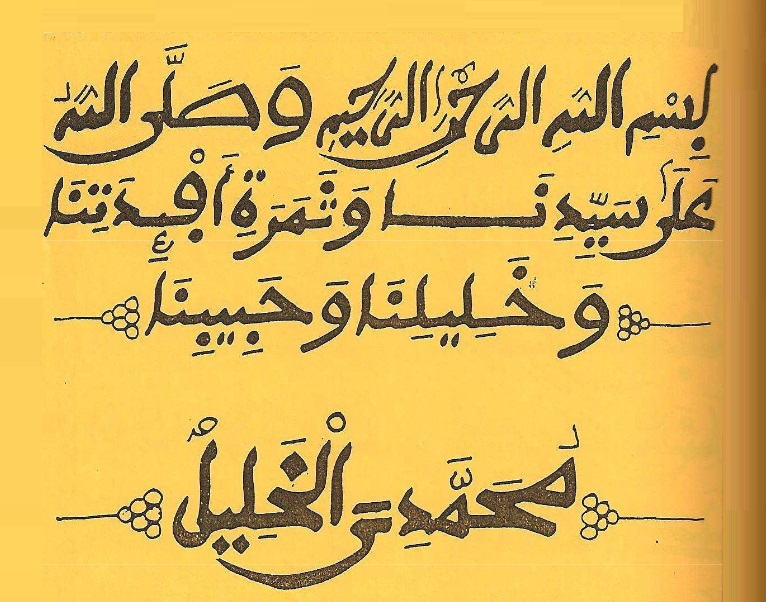 بِسْمِ اللَّهِ الرَّحْمَٰنِ الرَّحِيمِ وَصَلَّى اللَّهُ
عَلَى سَيِّدِنَا وَثَمَرَةِ أَفْئِدَتِنَا
وَخَلِيلِنَا وَحَبِيبِنَا
مُحَمَّدِ الْخَلِيلُ